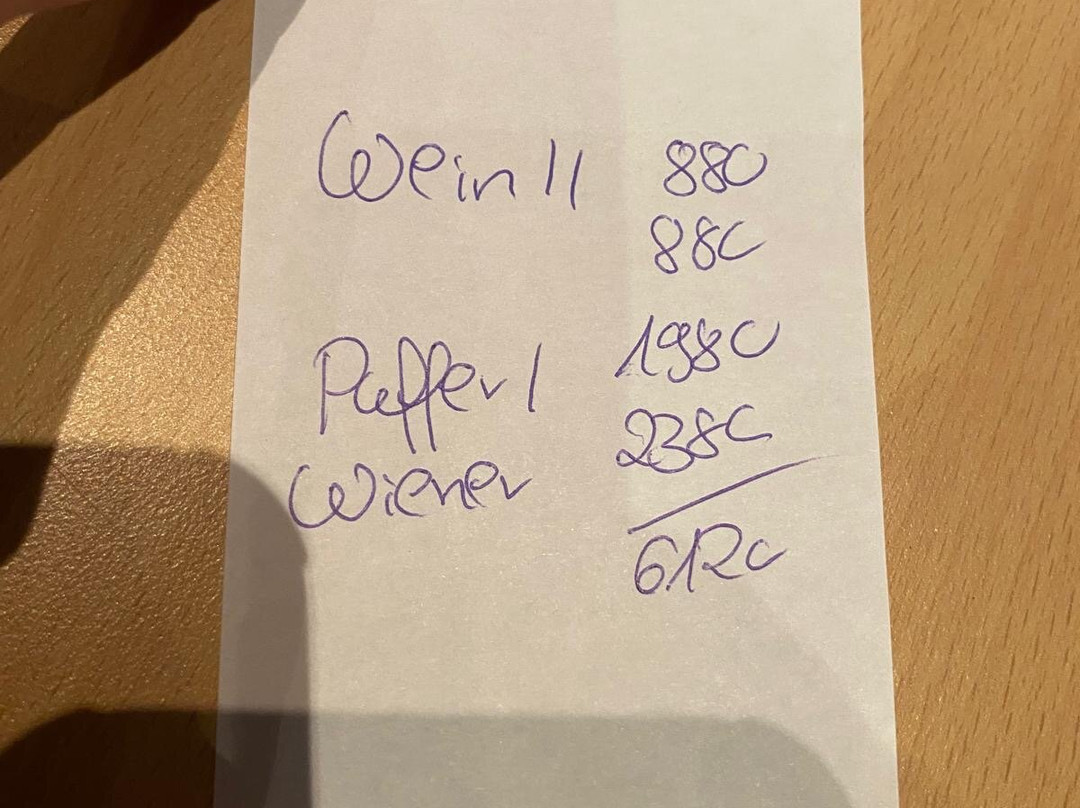 Wein II 880
880
Puffer I 1980
Wiener 2380
6120